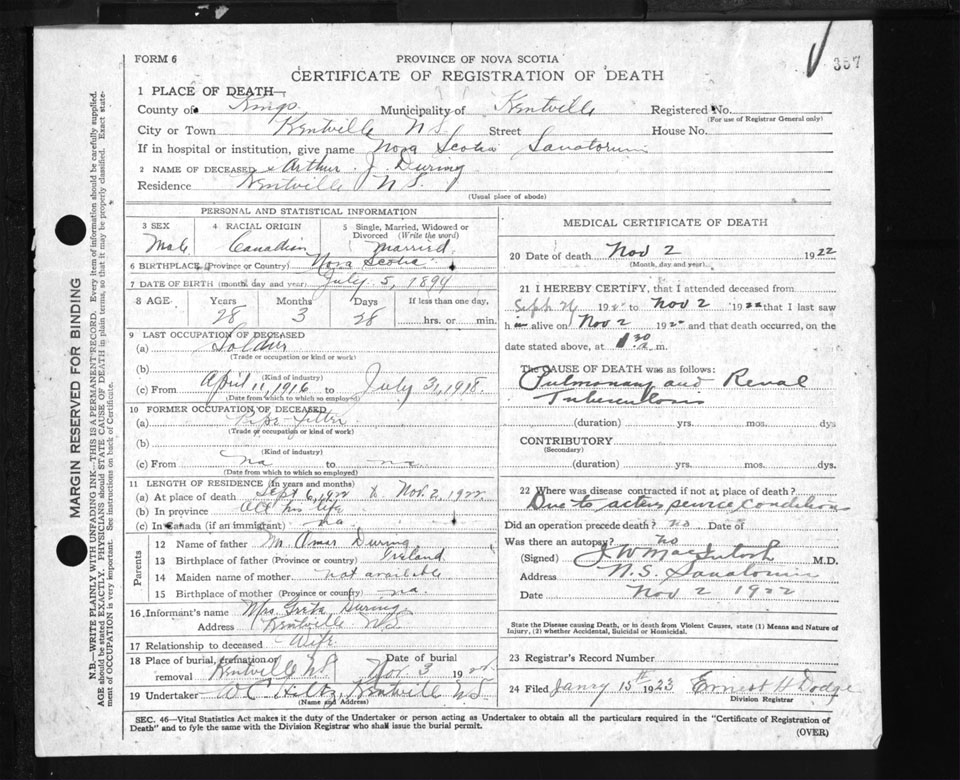 357
FORM 6
PROVINCE OF NOVA SCOTIA
CERTIFICATE OF REGISTRATION OF DEATH
1 PLACE OF DEATH—
County of Kings Municipality of Kentville Registered No.
(For use of Registrar General only)
City or Town Kentville N S Street House No.
If in hospital or institution, give name Nova Scotia Sanatorium
2 NAME OF DECEASED Arthur J. During
Residence Kentville N S.
(Usual place of abode)
PERSONAL AND STATISTICAL INFORMATION
3 SEX
Male
4 RACIAL ORIGIN
Canadian
5 Single, Married, Widowed or Divorced (Write the word)
Married
6 BIRTHPLACE (Province or Country) Nova Scotia
7 DATE OF BIRTH (month, day and year) July 5, 1894
8 AGE Years Months Days If less than one day,
28 3 28 hrs. or min.
9 LAST OCCUPATION OF DECEASED
(a) Soldier
(Trade or occupation or kind or work)
(b)
(Kind of industry)
(c) From April 11, 1916 to July 31, 1918.
(Date from which to which so employed)
10 FORMER OCCUPATION OF DECEASED
(a) Pipe Fitter
(Trade or occupation or kind of work)
(b)
(Kind of industry)
(c) From na to na
(Date from which to which so employed)
11 LENGTH OF RESIDENCE (In years and months)
(a) At place of death Sept 6, 1922 to Nov. 2, 1922
(b) In province all his life
(c) In Canada (if an immigrant) na.
Parents
12 Name of father Mr Omar During
13 Birthplace of father (Province or country) Ireland
14 Maiden name of mother not available
15 Birthplace of mother (Province or country) na.
16 Informant's name Mrs. Greta During
Address Kentville N.S.
17 Relationship to deceased Wife
18 Place of burial, cremation or removal Kentville N.S. Date of burial Nov. 3 1922
19 Undertaker W C Hiltz, Kentville N.S.
(Name and Address)
MEDICAL CERTIFICATE OF DEATH
20 Date of death Nov 2 1922
(Month, day and year)
21 I HEREBY CERTIFY, that I attended deceased from
Sept 26 1922 to Nov 2 1922 that I last saw
h im alive on Nov 2 1922 and that death occurred, on the
date stated above, at 1.30 a m.
The CAUSE OF DEATH was as follows:
Pulmonary and Renal
Tuberculosis
(duration) yrs. mos. dys
CONTRIBUTORY
(Secondary)
(duration) yrs. mos. dys.
22 Where was disease contracted if not at place of death?
Due to active service conditions
Did an operation precede death? no Date of
Was there an autopsy? no
(Signed) J W MacIntosh M.D.
Address N.S. Sanatorium
Date Nov 2 1922
State the Disease causing Death, or in death from Violent Causes, state (1) Means and Nature of Injury, (2) whether Accidental, Suicidal or Homicidal.
23 Registrar's Record Number
24 Filed Janry 15th 1923 Ernest H Dodge
Division Registrar
SEC. 46—Vital Statistics Act makes it the duty of the Undertaker or person acting as Undertaker to obtain all the particulars required in the "Certificate of Registration of
Death" and to fyle the same with the Division Registrar who shall issue the burial permit.
(OVER)
MARGIN RESERVED FOR BINDING
N.B.—WRITE PLAINLY WITH UNFADING INK—THIS IS A PERMANENT RECORD. Every item of information should be carefully supplied.
AGE should be stated EXACTLY. PHYSICIANS should STATE CAUSE OF DEATH in plain terms, so that it may be properly classified. Exact statement of OCCUPATION is very important. See instructions on back of Certificate.